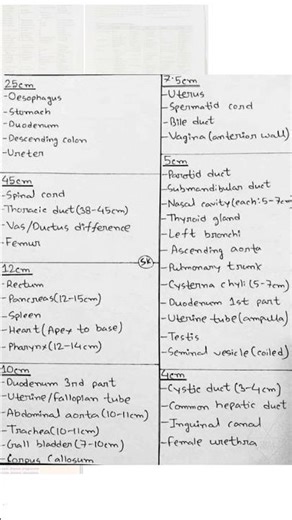 25cm
-Oesophagus
-Stomach
-Duodenum
-Descending colon
-Ureter
45cm
-Spinal cord
-Thoracic duct (38-45cm)
-Vas/Ductus difference
-Femur
12cm
-Rectum
-Pancreas (12-15cm)
-Spleen
-Heart (Apex to base)
-Pharynx (12-14cm)
10cm
-Duodenum 3rd part
-Uterine/fallopian tube
-Abdominal aorta (10-11cm)
-Trachea (10-11cm)
-Gall bladder (7-10cm)
-Corpus Callosum
SK
7.5cm
-Uterus
-Spermatid cord
-Bile duct
-Vagina (anterior wall)
5cm
-Parotid duct
-Submandibular duct
-Nasal cavity (each:5-7cm)
-Thyroid gland
-Left bronchi
-Ascending aorta
-Pulmonary trunk
-Cysterna chyli (5-7cm)
-Duodenum 1st part
-Uterine tube (ampulla)
-Testis
-Seminal vesicle (coiled)
4cm
-Cystic duct (3-4cm)
-Common hepatic duct
-Inguinal canal
-Female urethra